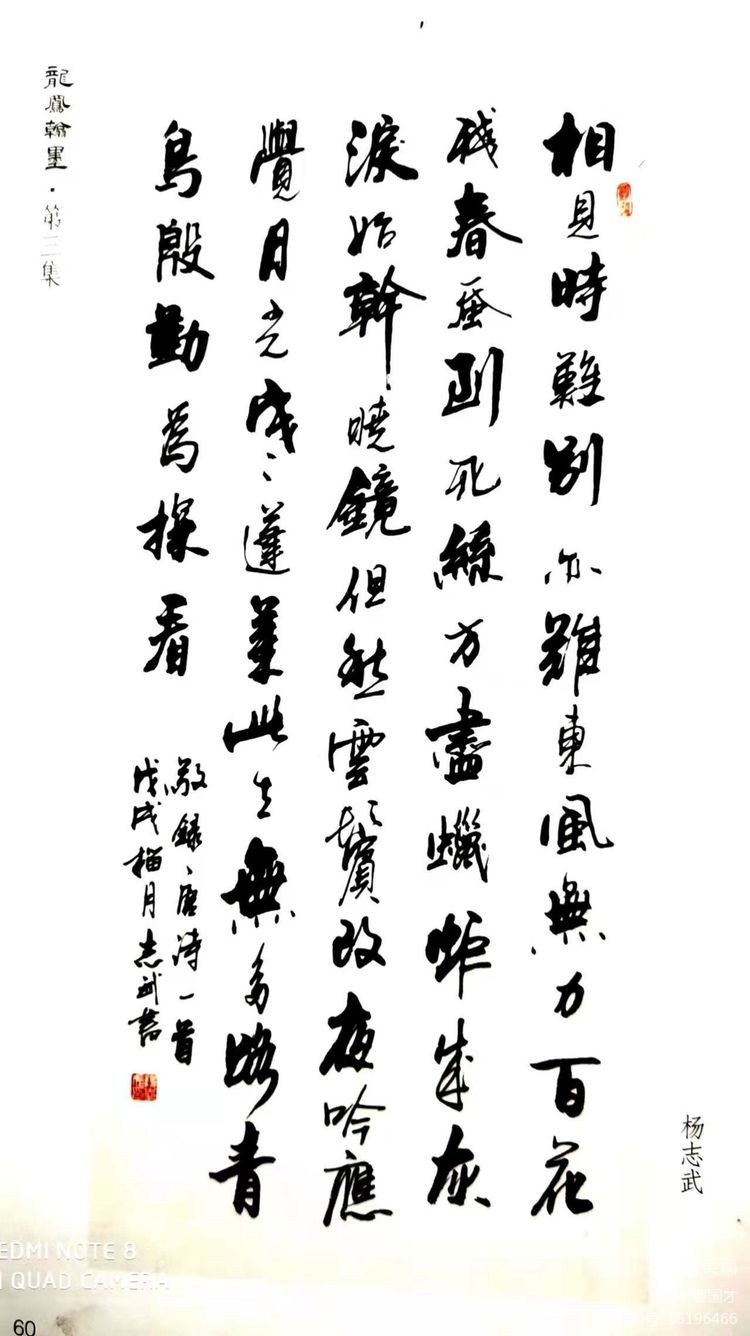 杨志武
相見時難別亦難東風無力百花
残春蚕到死絲方盡蠟炬成灰
淚始幹曉鏡但愁雲鬢改夜吟應
覺月光寒蓬萊此去無多路青
鳥殷勤為探看
敬錄唐詩一首
戊戌梅月志武書
龍鳳翰墨·第三集
EDMI NOTE 8
QUAD CAMERA
60